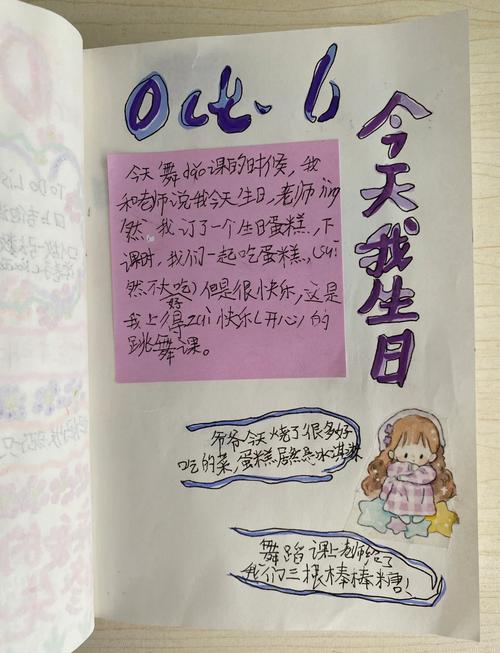 Oct. 6
今天我生日
今天舞dao课的时候，我
和老师说我今天生日，老师jing
然。我订了一个生日蛋糕，下
课时，我们一起吃蛋糕，(sui
然不大好吃)但是很快乐，这是
我上得zui快乐(开心)的
跳舞课。
爷爷今天烧了很多好
吃的菜，蛋糕居然是冰淇淋
舞蹈课上老师给了
我们三根棒棒糖！
To Do Lis